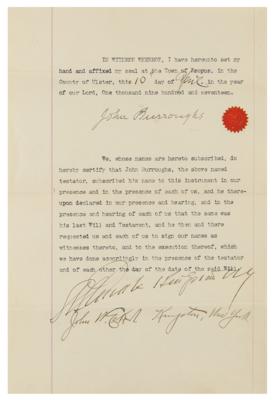 IN WITNESS WHEREOF, I have hereunto set my
hand and affixed my seal at the Town of Esopus, in the
County of Ulster, this 10 day of April in the year
of our Lord, One thousand nine hundred and seventeen.
John Burroughs
We, whose names are hereto subscribed, do
hereby certify that John Burroughs, the above named
testator, subscribed his name to this instrument in our
presence and in the presence of each of us, and he there-
upon declared in our presence and hearing, and in the
presence and hearing of each of us that the same was
his last Will and Testament, and he then and there
requested us and each of us to sign our names as
witnesses thereto, and to the execution thereof, which
we have done accordingly in the presence of the testator
and of each other the day of the date of the said Will.
Kingston, N.Y.
John Kingston, New York